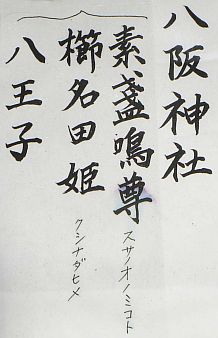 八阪神社
素盞鳴尊
スサノオノミコト
櫛名田姫
クシナダヒメ
八王子